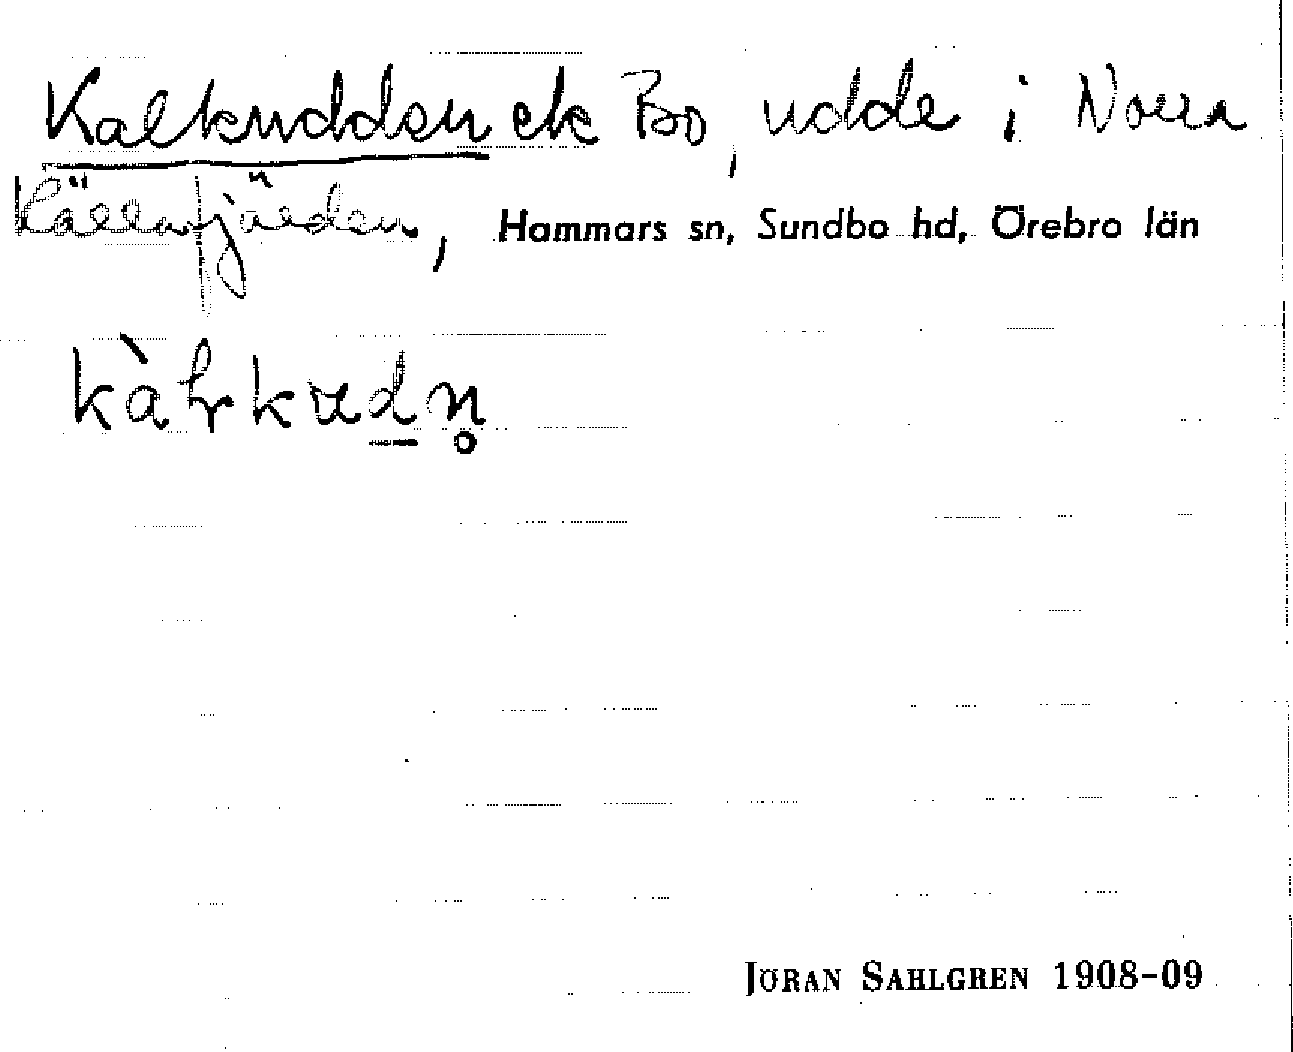 Kalkudden ek Bo, udde i Norra
Kärrafjärden, Hammars sn, Sundbo hd, Örebro län
JÖRAN SAHLGREN 1908-09